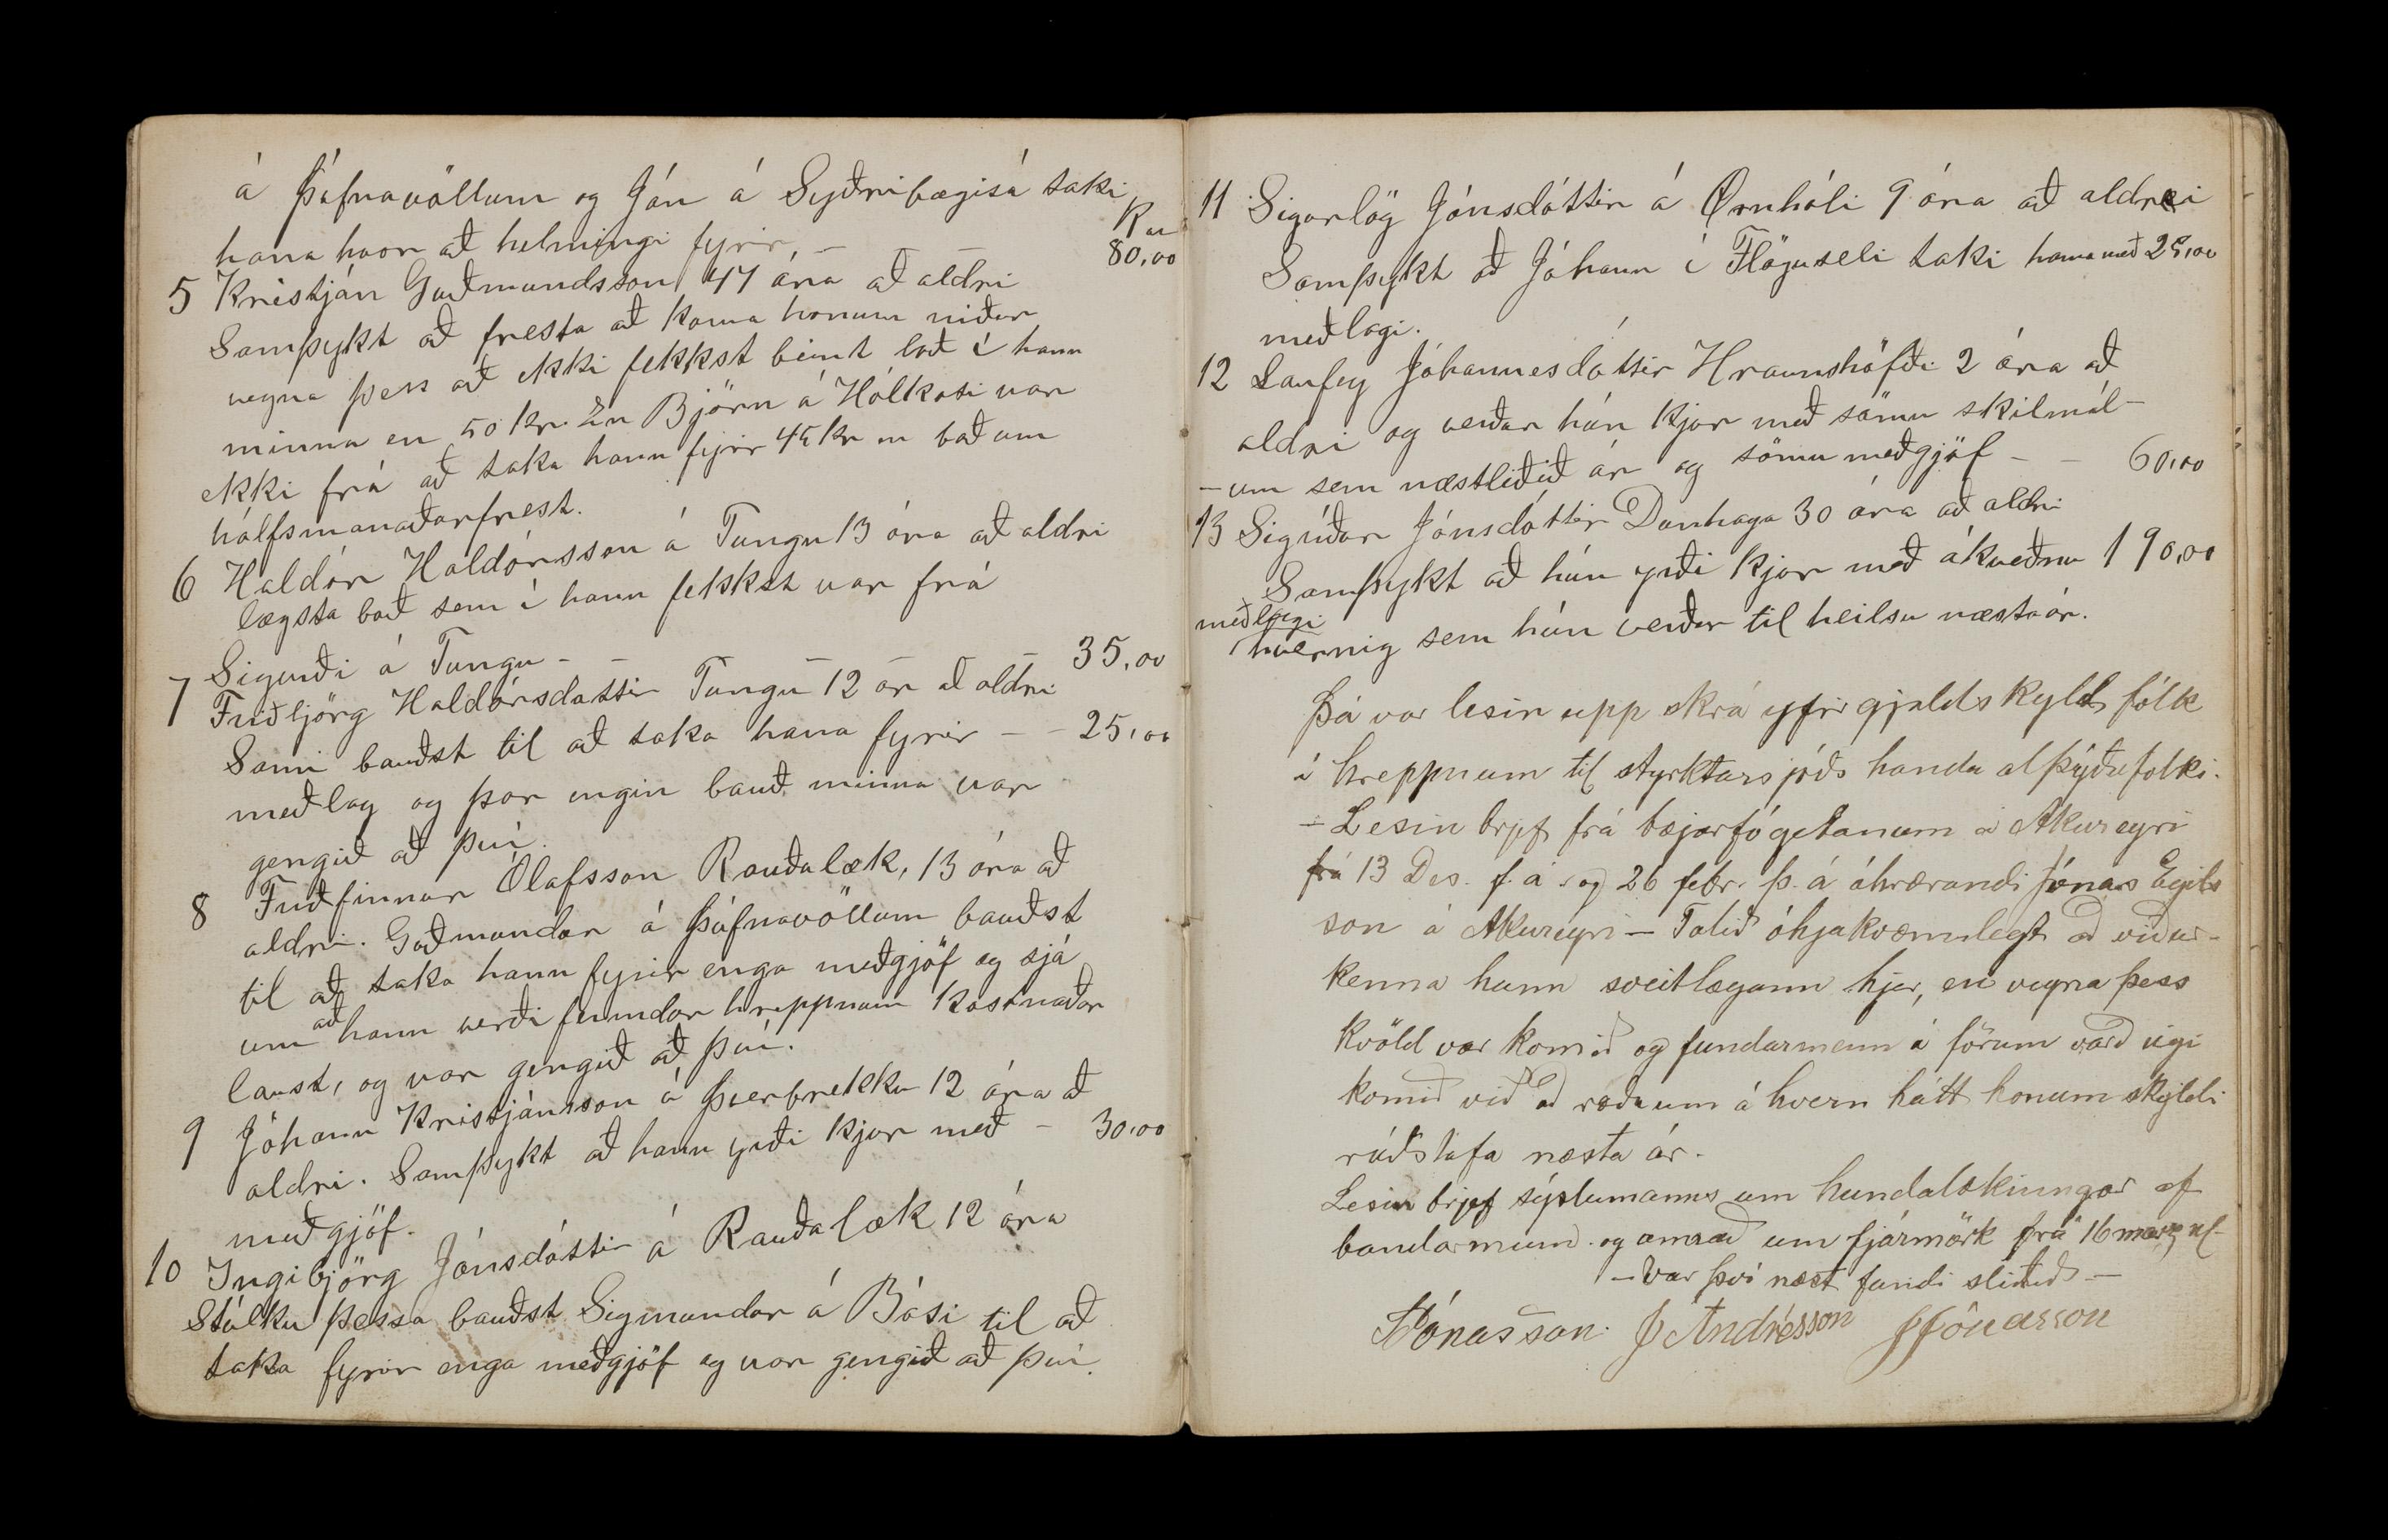 á Þúfnavöllum og Jón á Syðribægisá taki
Kr au
hana hvor að helmingi fyrir — — — 80,00
5 Kristján Guðmundsson 47 ára að aldri
Samþykt að fresta að koma honum niður
vegna þess að ekki fekkst beint boð í hann
minna en 50 kr. En Björn á Hólkoti var
ekki frá að taka hann fyrir 45 kr en bað um
hálfsmanaðarfrest.
6 Haldór Haldórsson á Tungu 13 ára að aldri
lægsta boð sem í hann fekkst var frá
Sigurði á Tungu — — — — — 35,00
7 Friðbjörg Haldórsdottir Tungu 12 ar að aldri
Sami bauðst til að taka hana fyrir — — 25,00
meðlag og þar engin bauð minna var
gengið að því.
8 Friðfinnur Ólafsson Rauðalæk, 13 ára að
aldri. Guðmundur á Þúfnavöllum bauðst
til að taka hann fyrir enga meðgjöf og sjá
um að hann verði framdar hreppnum kostnaðar
laust, og var gengið að því.
9 Jóhann Kristjánsson á Þverbrekku 12 ára að
aldri. Samþykt að hann yrði kjur með — 30,00
meðgjöf.
10 Ingibjörg Jónsdóttir á Rauðalæk 12 ára
Stúlku þessa bauðst Sigmundur á Bási til að
taka fyrir enga meðgjöf og var gengið að því.
11 Sigurlög Jónsdóttir á Ernhóli 9 ára að aldri
Samþykt að Jóhann í Flöguseli taki hana með 25,00
meðlagi.
12 Laufey Jóhannesdóttir Hraunshöfði 2 ára að
aldri og verður hún kjur með sömu skilmál-
-um sem næstliðið ár og sömu meðgjöf — — 60,00
13 Sigríður Jónsdóttir Dunhaga 30 ára að aldri
Samþykt að hún yrði kjur með ákveðnu 190,00
meðlagi
hvernig sem hún verður til heilsu næsta ár.
Þá var lesin upp skrá yfir gjaldskyld fólk
í hreppnum til styrktarsjóðs handa alþýðufolki.
— Lesin brjef frá bæjarfógetanum á Akureyri
frá 13 Des. f. á. og 26 febr. þ. á áhrærandi Jónas Egils
son á Akureyri — Talið óhjakvæmilegt að viður-
kenna hann sveitlægann hjer, en vegna þess
kvöld var komið og fundarmenn á förum varð eigi
komið við að ræða um á hvern hátt honum skyldi
ráðstafa næsta ár.
Lesin brjef sýslumanns um hundalækningar af
bandormum. og um fjármörk frá 16 marz
— Var því næst fundi slitið —
Jónasson. J Andrésson J Jónasson